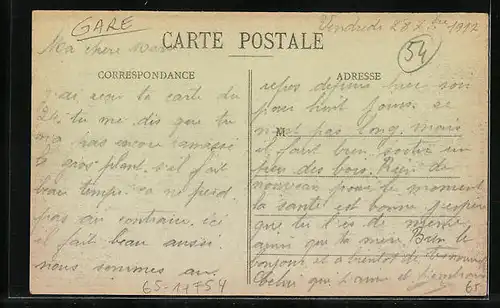 GARE
Vendredi 28 1912
Ma chere
CARTE POSTALE
54
CORRESPONDANCE
ADRESSE
J'ai reçu ta carte du
24 tu me dis que tu
pas encore ramassé
gros plant. s'il fait
beau temps. ca ne perd
pas au contraire. ici
il fait beau aussi.
nous sommes au
repos depuis hier soir
pour huit jours. ce
n'est pas long, mais
M
il fait bien sortir un
peu des bois. Rien de
nouveau pour le moment
la santé est bonne j'espère
que tu es de même
ainsi que ta mère. Bien le
bonjour et a bientot de
Celui qui t'aime et
65-11754
65